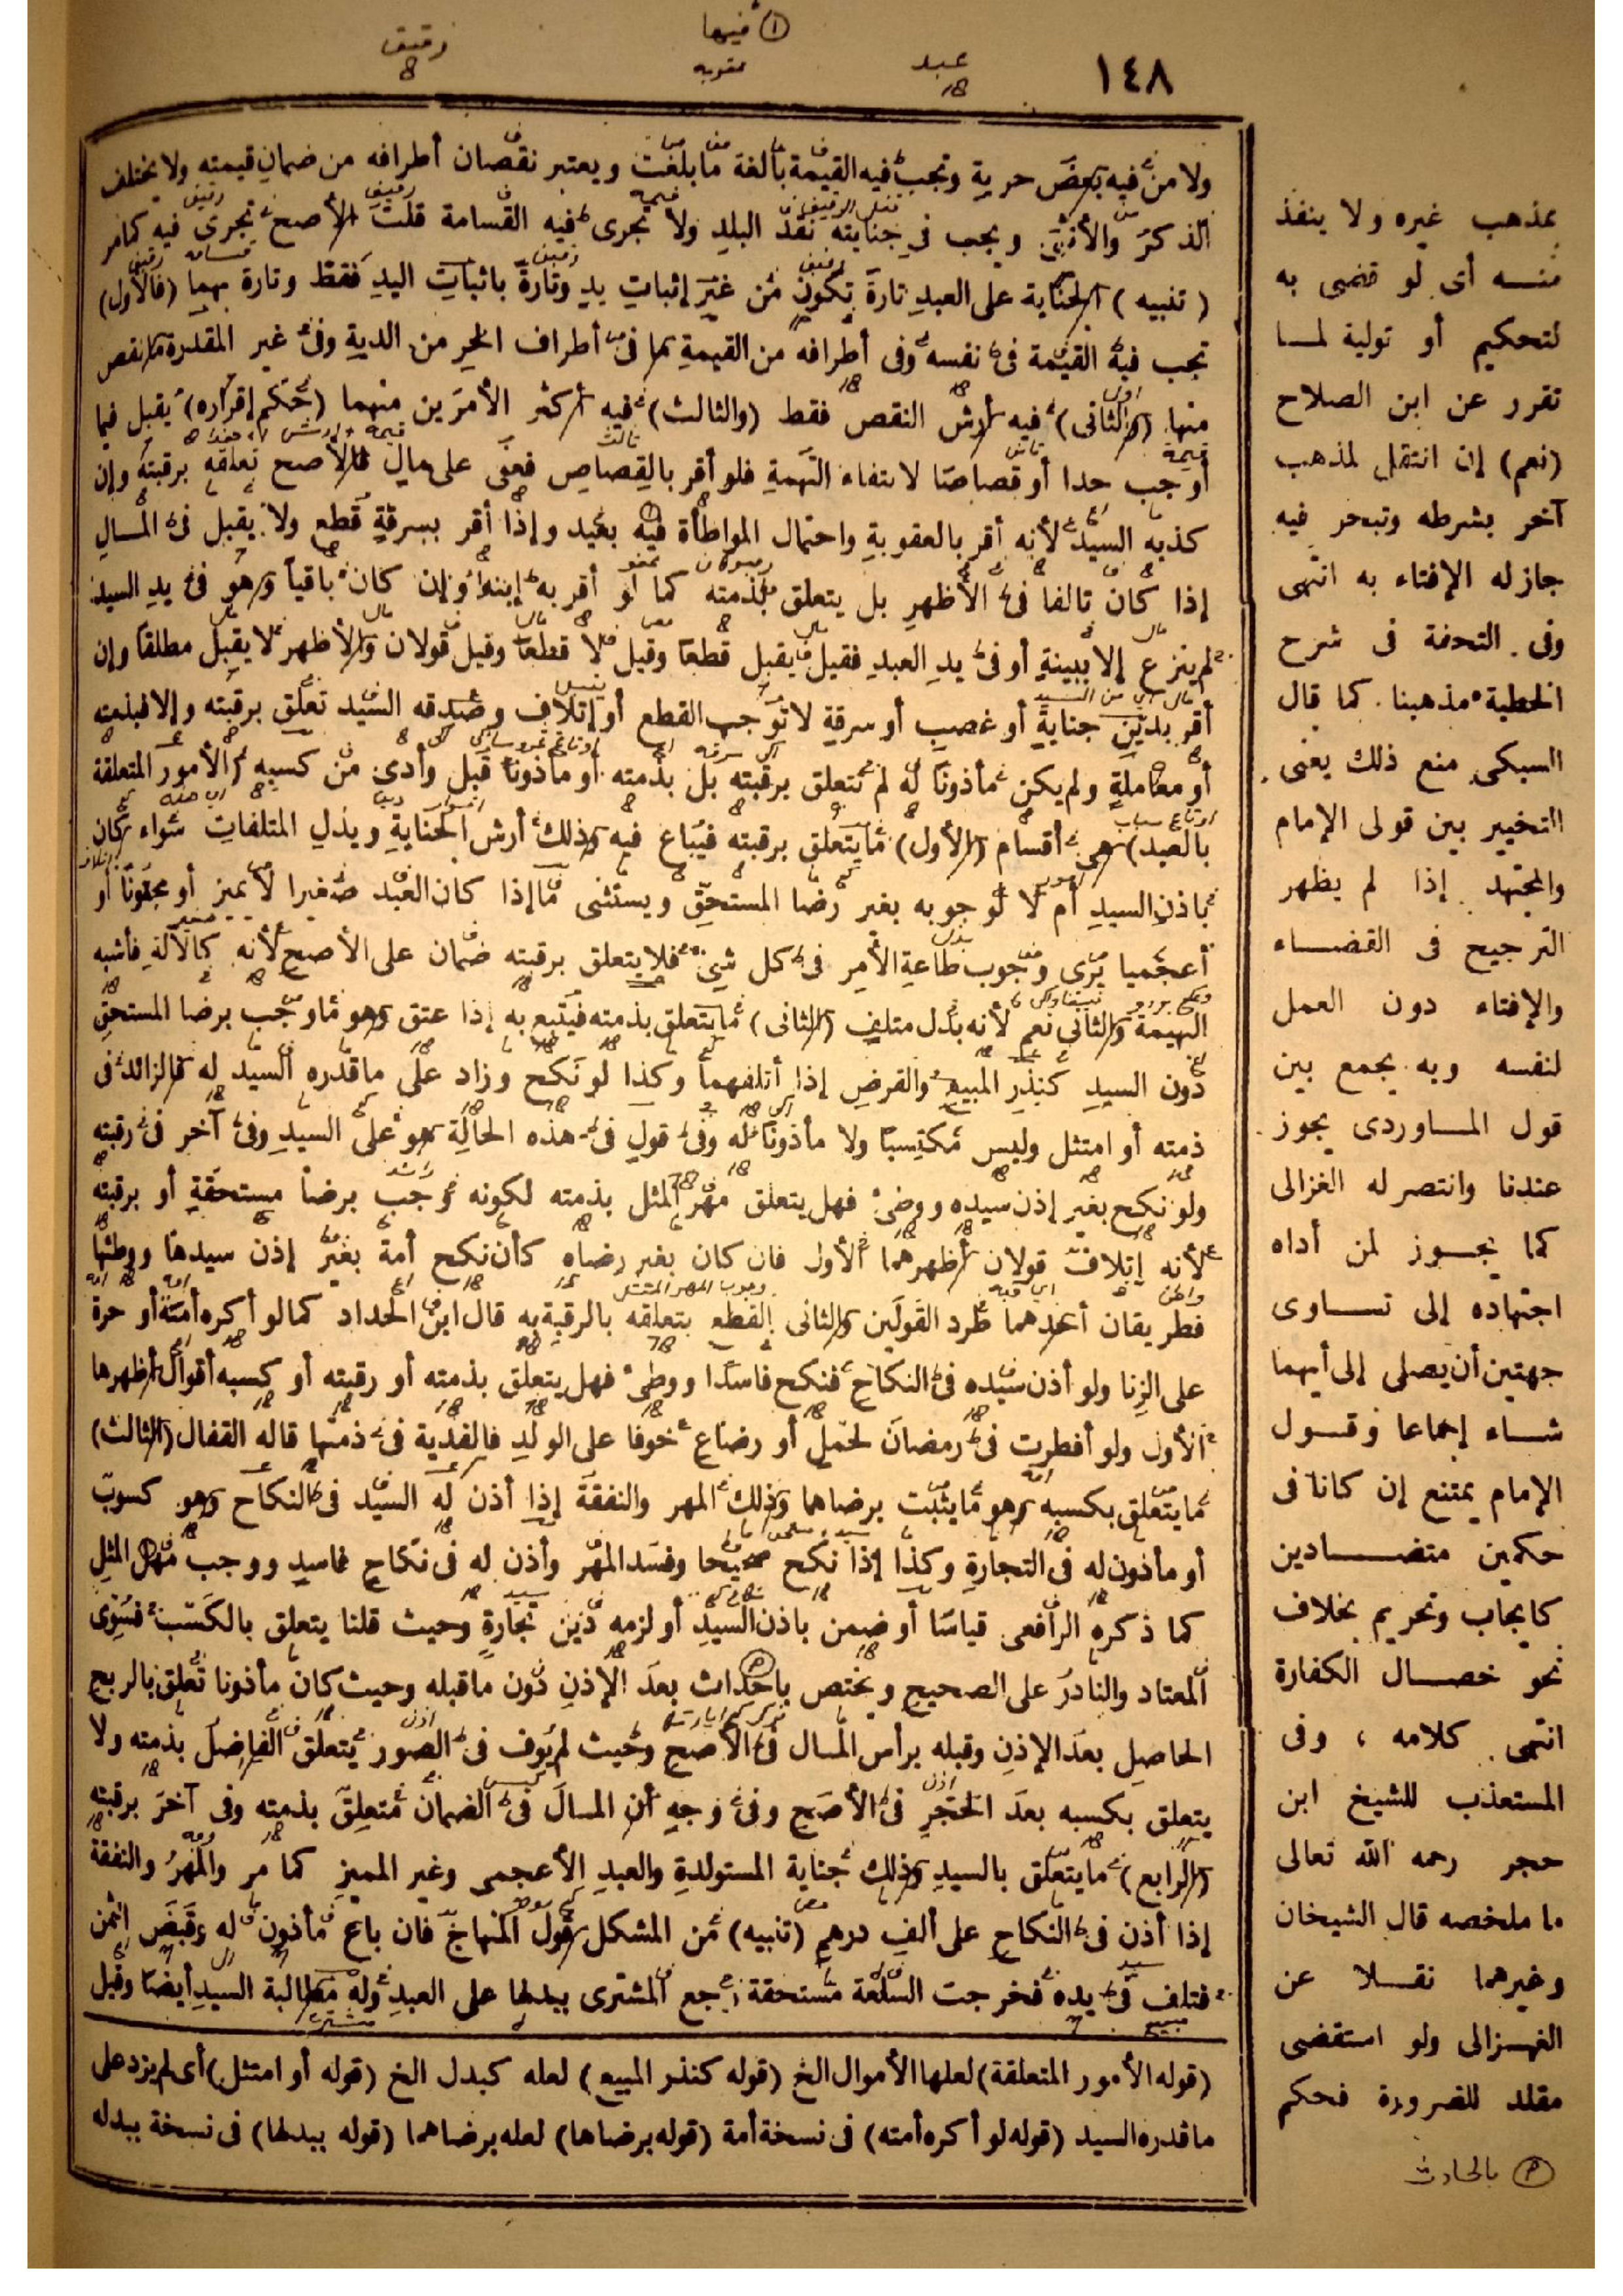 ١٤٨
ولا من فيه بعض حرية وتجب فيه القيمة بالغة ما بلغت ويعتبر نقصان أطرافه من ضمان قيمته ولا يختلف
الذكر والأنثى ويجب فى جنايته نقد البلد ولا تجرى فيه القسامة قلت الأصح تجرى فيه كما مر
(تنبيه) الجناية على العبد تارة تكون من غير إثبات يد وتارة باثبات اليد فقط وتارة بهما (فالأول)
تجب فيه القيمة فى نفسه وفى أطرافه من القيمة ما فى أطراف الحر من الدية وفى غير المقدرة ما نقص
منها (والثانى) فيه أرش النقص فقط (والثالث) فيه أكثر الأمرين منهما (حكم إقراره) يقبل فيما
أوجب حدا أو قصاصا لانتفاء التهمة فلو أقر بالقصاص فعفى على مال فالأصح تعلقه برقبته وإن
كذبه السيد لأنه أقر بالعقوبة واحتمال المواطأة فيه بعيد وإذا أقر بسرقة قطع ولا يقبل فى المال
إذا كان تالفا فى الأظهر بل يتعلق بذمته كما لو أقر به إبنه وإن كان باقيا وهو فى يد السيد
لم ينزع إلا ببينة أو فى يد العبد فقيل يقبل قطعا وقيل لا قطعا وقيل قولان والأظهر لا يقبل مطلقا وإن
أقر بدين جناية أو غصب أو سرقة لا توجب القطع أو إتلاف وصدقه السيد تعلق برقبته وإلا فبذمته
أو معاملة ولم يكن مأذونا له لم تتعلق برقبته بل بذمته أو مأذونا قبل وأدى من كسبه (الأمور المتعلقة
بالعبد) هى أقسام (الأول) ما يتعلق برقبته فيباع فيه وذلك أرش الجناية وبدل المتلفات سواء كان
باذن السيد أم لا لوجوبه بغير رضا المستحق ويستثنى ما إذا كان العبد صغيرا لا يميز أو مجنونا أو
أعجميا يرى وجوب طاعة الأمر فى كل شىء فلا يتعلق برقبته ضمان على الأصح لأنه كالآلة فأشبه
البهيمة والثانى نعم لأنه بدل متلف (الثانى) ما يتعلق بذمته فيتبع به إذا عتق وهو ما وجب برضا المستحق
دون السيد كنذر المبيع والقرض إذا أتلفهما وكذا لو نكح وزاد على ما قدره السيد له فالزائد فى
ذمته أو امتثل وليس مكتسبا ولا مأذونا له وفى قول فى هذه الحالة هو على السيد وفى آخر فى رقبته
ولو نكح بغير إذن سيده ووطئ فهل يتعلق مهر المثل بذمته لكونه وجب برضا مستحقة أو برقبته
لأنه إتلاف قولان أظهرهما الأول فان كان بغير رضاه كأن نكح أمة بغير إذن سيدها ووطئها
فطريقان أحدهما طرد القولين والثانى القطع بتعلقه بالرقبة به قال ابن الحداد كما لو أكره أمته أو حرة
على الزنا ولو أذن سيده فى النكاح فنكح فاسدا ووطئ فهل يتعلق بذمته أو رقبته أو كسبه أقوال أظهرها
الأول ولو أفطرت فى رمضان لحمل أو رضاع خوفا على الولد فالفدية فى ذمتها قاله القفال (الثالث)
ما يتعلق بكسبه وهو ما يثبت برضاهما وذلك المهر والنفقة إذا أذن له السيد فى النكاح وهو كسوب
أو مأذون له فى التجارة وكذا إذا نكح صحيحا وفسد المهر وأذن له فى نكاح فاسد ووجب مهر المثل
كما ذكره الرافعى قياسا أو ضمن باذن السيد أو لزمه دين تجارة وحيث قلنا يتعلق بالكسب فسوى
المعتاد والنادر على الصحيح ويختص باحداث بعد الإذن دون ما قبله وحيث كان مأذونا تعلق بالربح
الحاصل بعد الإذن وقبله برأس المال فى الأصح وحيث لم يوف فى الصور يتعلق الفاضل بذمته ولا
يتعلق بكسبه بعد الحجر فى الأصح وفى وجه أن المال فى الضمان متعلق بذمته وفى آخر برقبته
(الرابع) ما يتعلق بالسيد وذلك جناية المستولدة والعبد الأعجمى وغير المميز كما مر والمهر والنفقة
إذا أذن فى النكاح على ألف درهم (تنبيه) من المشكل قول المنهاج فان باع مأذون له وقبض الثمن
فتلف فى يده فخرجت السلعة مستحقة رجع المشترى ببدلها على العبد وله مطالبة السيد أيضا وقيل
(قوله الأمور المتعلقة) لعلها الأموال الخ (قوله كنذر المبيع) لعله كبدل الخ (قوله أو امتثل) أى لم يزد على
ما قدره السيد (قوله لو أكره أمته) فى نسخة أمة (قوله برضاها) لعله برضاهما (قوله ببدلها) فى نسخة ببدله
بمذهب غيره ولا ينفذ
منه أى لو قضى به
لتحكيم أو تولية لما
تقرر عن ابن الصلاح
(نعم) إن انتقل لمذهب
آخر بشرطه وتبحر فيه
جاز له الإفتاء به انتهى
وفى التحفة فى شرح
الخطبة مذهبنا كما قال
السبكى منع ذلك يعنى
التخيير بين قولى الإمام
والمجتهد إذا لم يظهر
الترجيح فى القضاء
والإفتاء دون العمل
لنفسه وبه يجمع بين
قول الماوردى يجوز
عندنا وانتصر له الغزالى
كما يجوز لمن أداه
اجتهاده إلى تساوى
جهتين أن يصلى إلى أيهما
شاء إجماعا وقول
الإمام يمتنع إن كانا فى
حكمين متضادين
كايجاب وتحريم بخلاف
نحو خصال الكفارة
انتهى كلامه ، وفى
المستعذب للشيخ ابن
حجر رحمه الله تعالى
ما ملخصه قال الشيخان
وغيرهما نقلا عن
الغزالى ولو استقضى
مقلد للضرورة فحكم